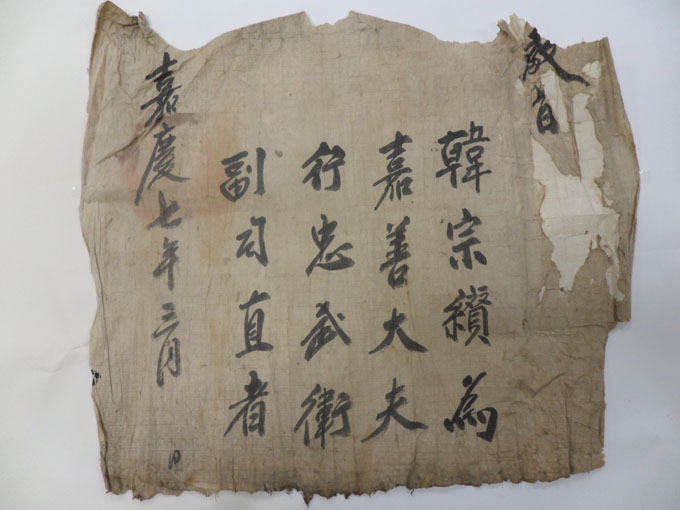 教旨
韓宗纘為
嘉善大夫
行忠武衛
副司直者
嘉慶七年三月 日